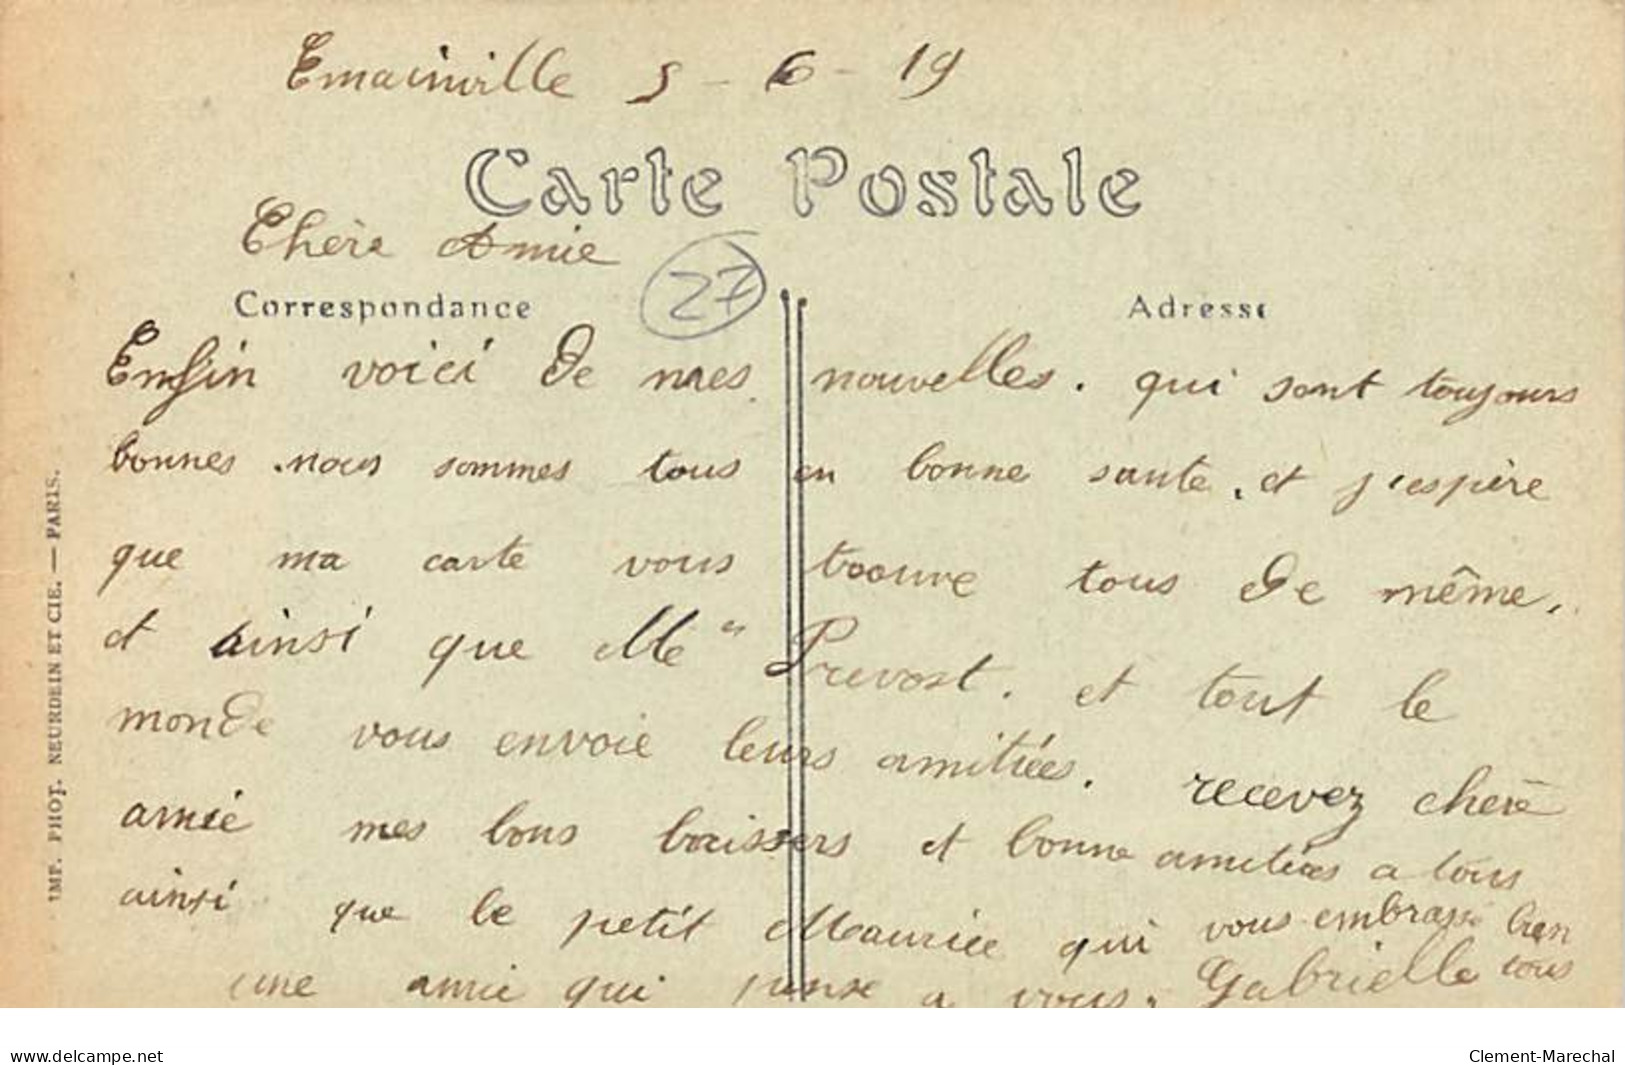 Emainville 5 - 6 - 19
Carte Postale
Chère Amie
27
Correspondance
Adresse
Enfin voici de mes nouvelles. qui sont toujours
bonnes. nous sommes tous en bonne sante. et j'espère
que ma carte vous trouve tous de même.
et ainsi que Me Prevost. et tout le
monde vous envoie leurs amitiées. recevez chere
amie mes bons baissers et bonne amitiées a tous
ainsi que le petit Maurice qui vous embrasse bien
tous
une amie qui pense a vous. Gabrielle
IMP. PHOT. NEURDEIN ET CIE. — PARIS.
www.delcampe.net
Clement-Marechal